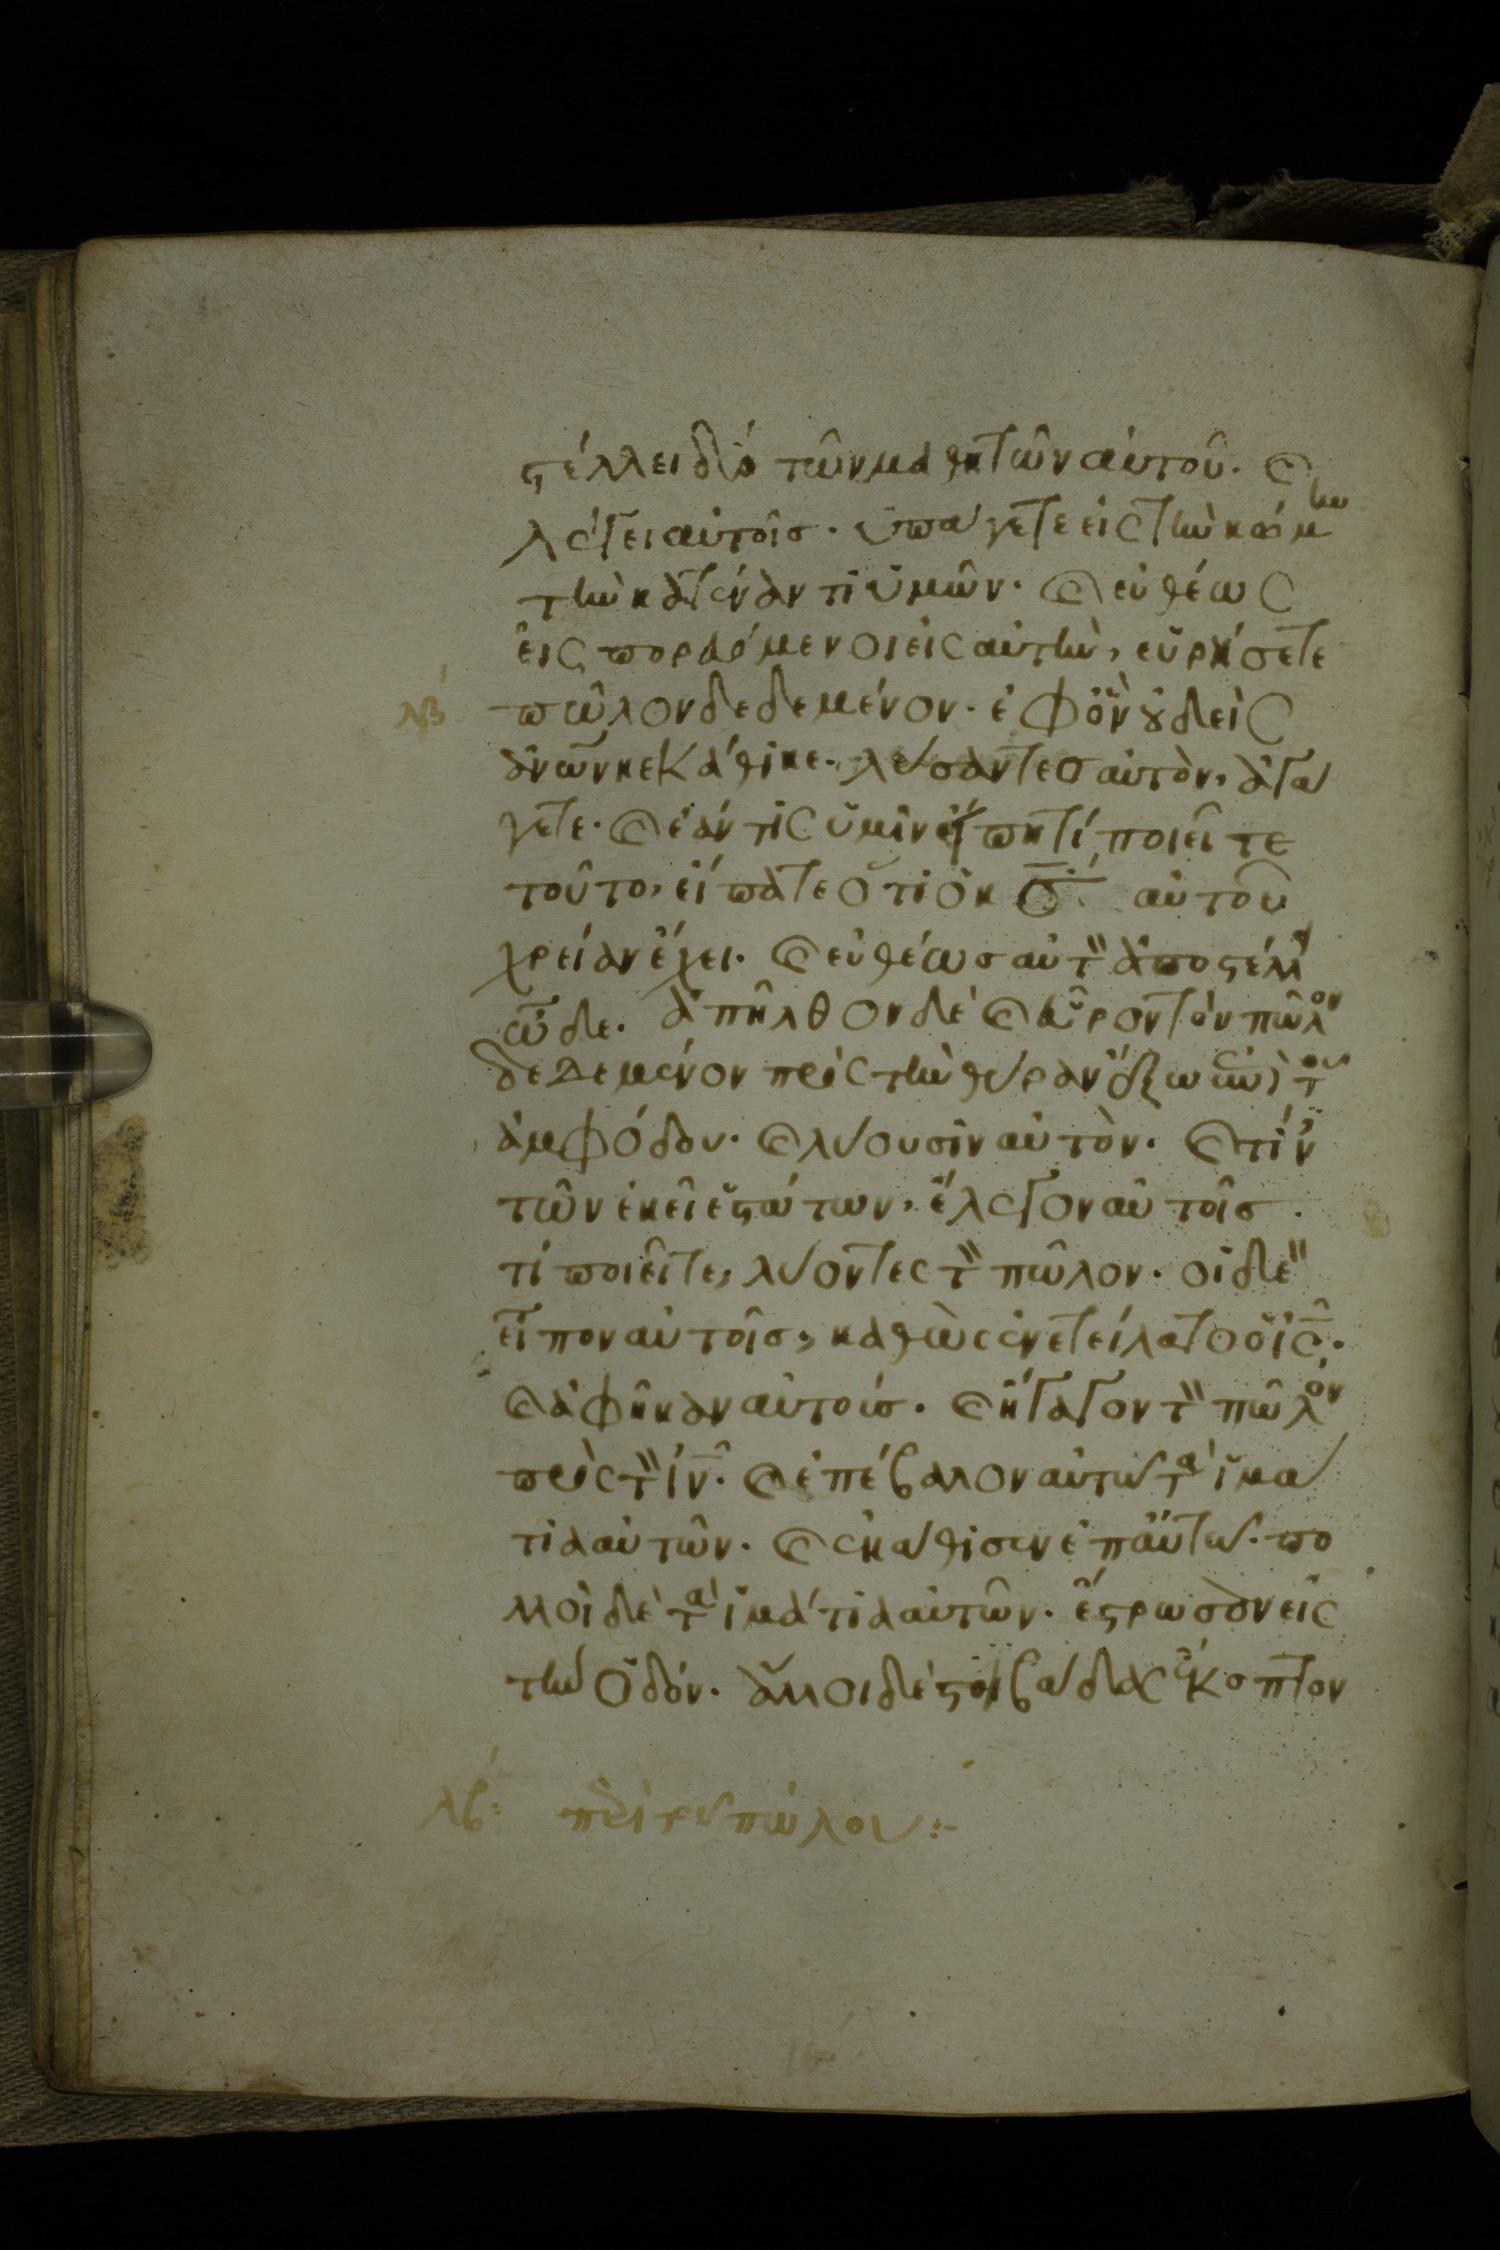 στέλλει δύο τῶν μαθητῶν αὐτοῦ. καὶ
λέγει αὐτοῖσ. ὑπάγετε εἰς τὴν κώμην
τὴν κατέναντι ὑμῶν. καὶ εὐθέως
εἰς πορευόμενοι εἰς αὐτὴν, εὑρήσετε
λβ πῶλον δεδεμένον. ἐφ ὃν οὐδεὶς
ἀνων κεκάθικε. λύσαντεσ αὐτὸν, ἀγά
γετε. καὶ ἐάν τις ὑμῖν εἴπη τί ποιεῖτε
τοῦτο, εἴπατε ὅτι ὁ κς αὐτοῦ
χρείαν ἔχει. καὶ εὐθέωσ αὐτὸν ἀποστέλλει
ὧδε. ἀπῆλθον δὲ καὶ εὗρον τὸν πῶλον
δεδεμένον πρὸς τὴν θύραν ἔξω ἐπὶ τοῦ
ἀμφόδου. καὶ λύουσιν αὐτὸν. καὶ τινὲς
τῶν ἐκεῖ ἑστώτων, ἔλεγον αὐτοῖσ.
τί ποιεῖτε, λύοντες τὸν πῶλον. οἱ δὲ
εἶπον αὐτοῖσ, καθὼς ἐνετείλατο ὁ ις.
καὶ ἀφῆκαν αὐτούσ. καὶ ἤγαγον τὸν πῶλον
πρὸς τὸν ιν. καὶ ἐπέβαλον αὐτῶ τὰ ἱμά
τια αὐτῶν. καὶ ἐκάθισεν ἐπ αὐτῶ. πο
λλοὶ δὲ τὰ ἱμάτια αὐτῶν. ἔστρωσαν εἰς
τὴν ὁδόν. ἄλλοι δὲ στοιβάδας ἔκοπτον
λβ: περὶ τοῦ πώλου:-